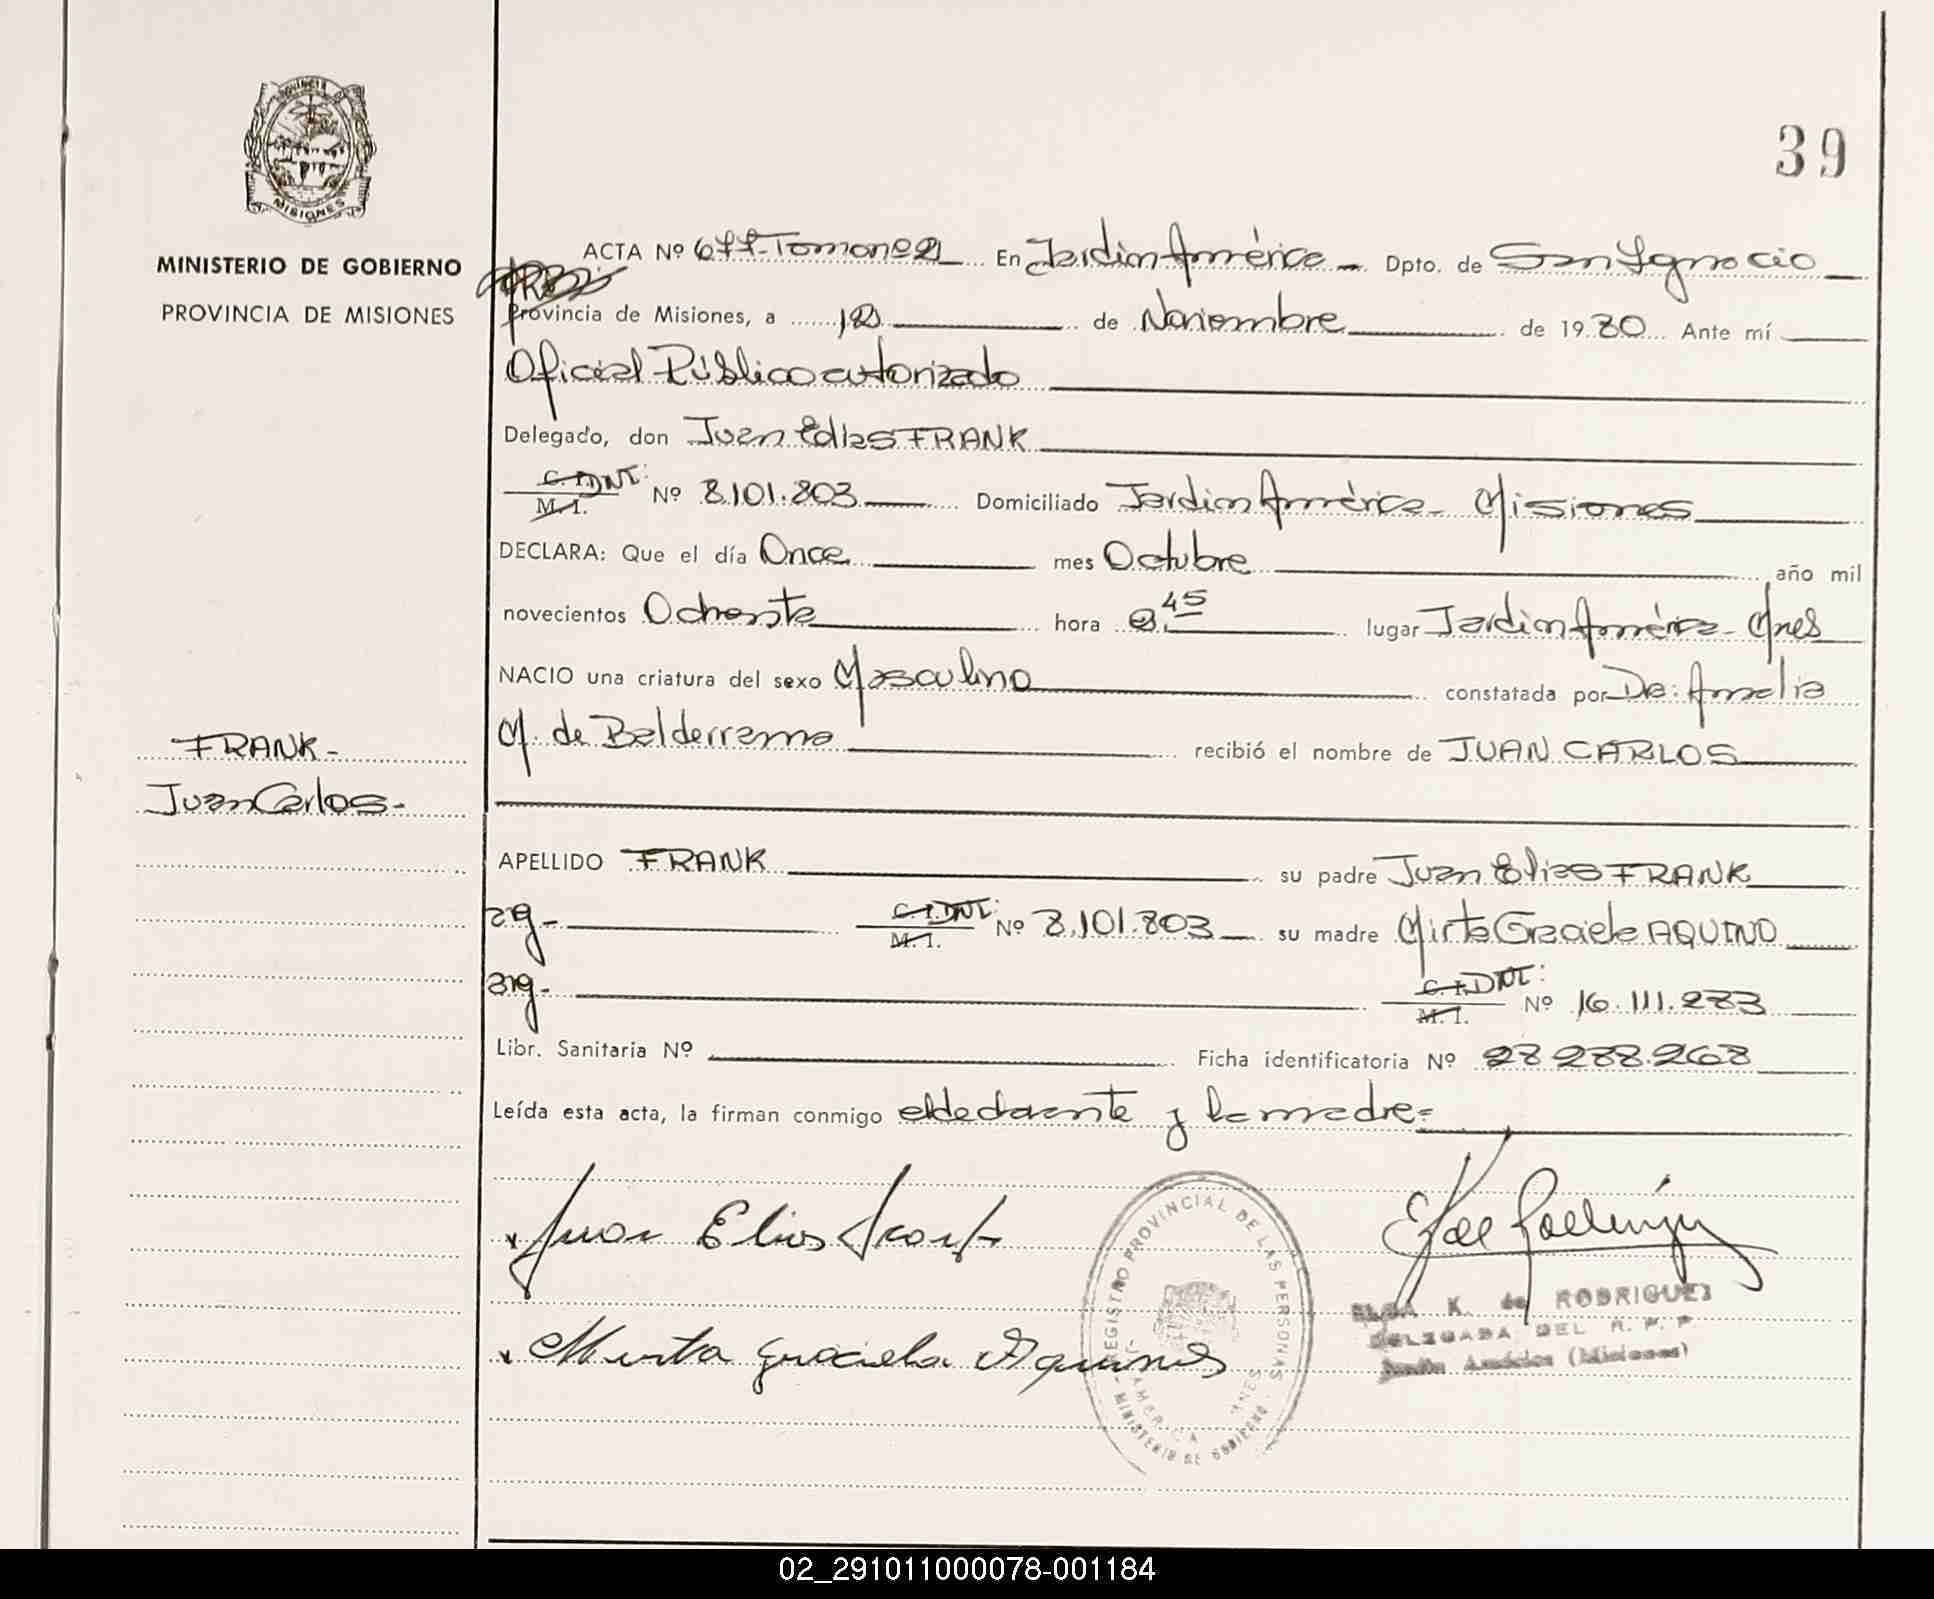 39
MINISTERIO DE GOBIERNO
PROVINCIA DE MISIONES
ACTA Nº 677-Tomo nº2 En Jardín América Dpto. de San Ignacio
Provincia de Misiones, a 12 de Noviembre de 1980 Ante mí
Oficial Público autorizado
Delegado, don Juan Elías FRANK
C. I. DNI: M. I. Nº 8.101.803 Domiciliado Jardín América - Misiones
DECLARA: Que el día Once mes Octubre año mil
novecientos Ochenta hora 45 lugar Jardín América - Mnes
NACIO una criatura del sexo Masculino constatada por Da: Amelia
M. de Balderrama recibió el nombre de JUAN CARLOS
FRANK-
Juan Carlos-
APELLIDO FRANK su padre Juan Elias FRANK
arg- C. I. DNI: M. I. Nº 8.101.803 su madre Mirta Graciela AQUINO
arg- C. I. DNI: M. I. Nº 16.111.273
Libr. Sanitaria Nº Ficha identificatoria Nº 28.288.268
Leída esta acta, la firman conmigo el declarante y la madre=
Juan Elias Frank
Mirta Graciela Aquino
REGISTRO PROVINCIAL DE LAS PERSONAS
MINISTERIO DE GOBIERNO
K. de RODRIGUEZ
DELEGADA DEL R. P. P.
Jardín América (Misiones)
02_291011000078-001184